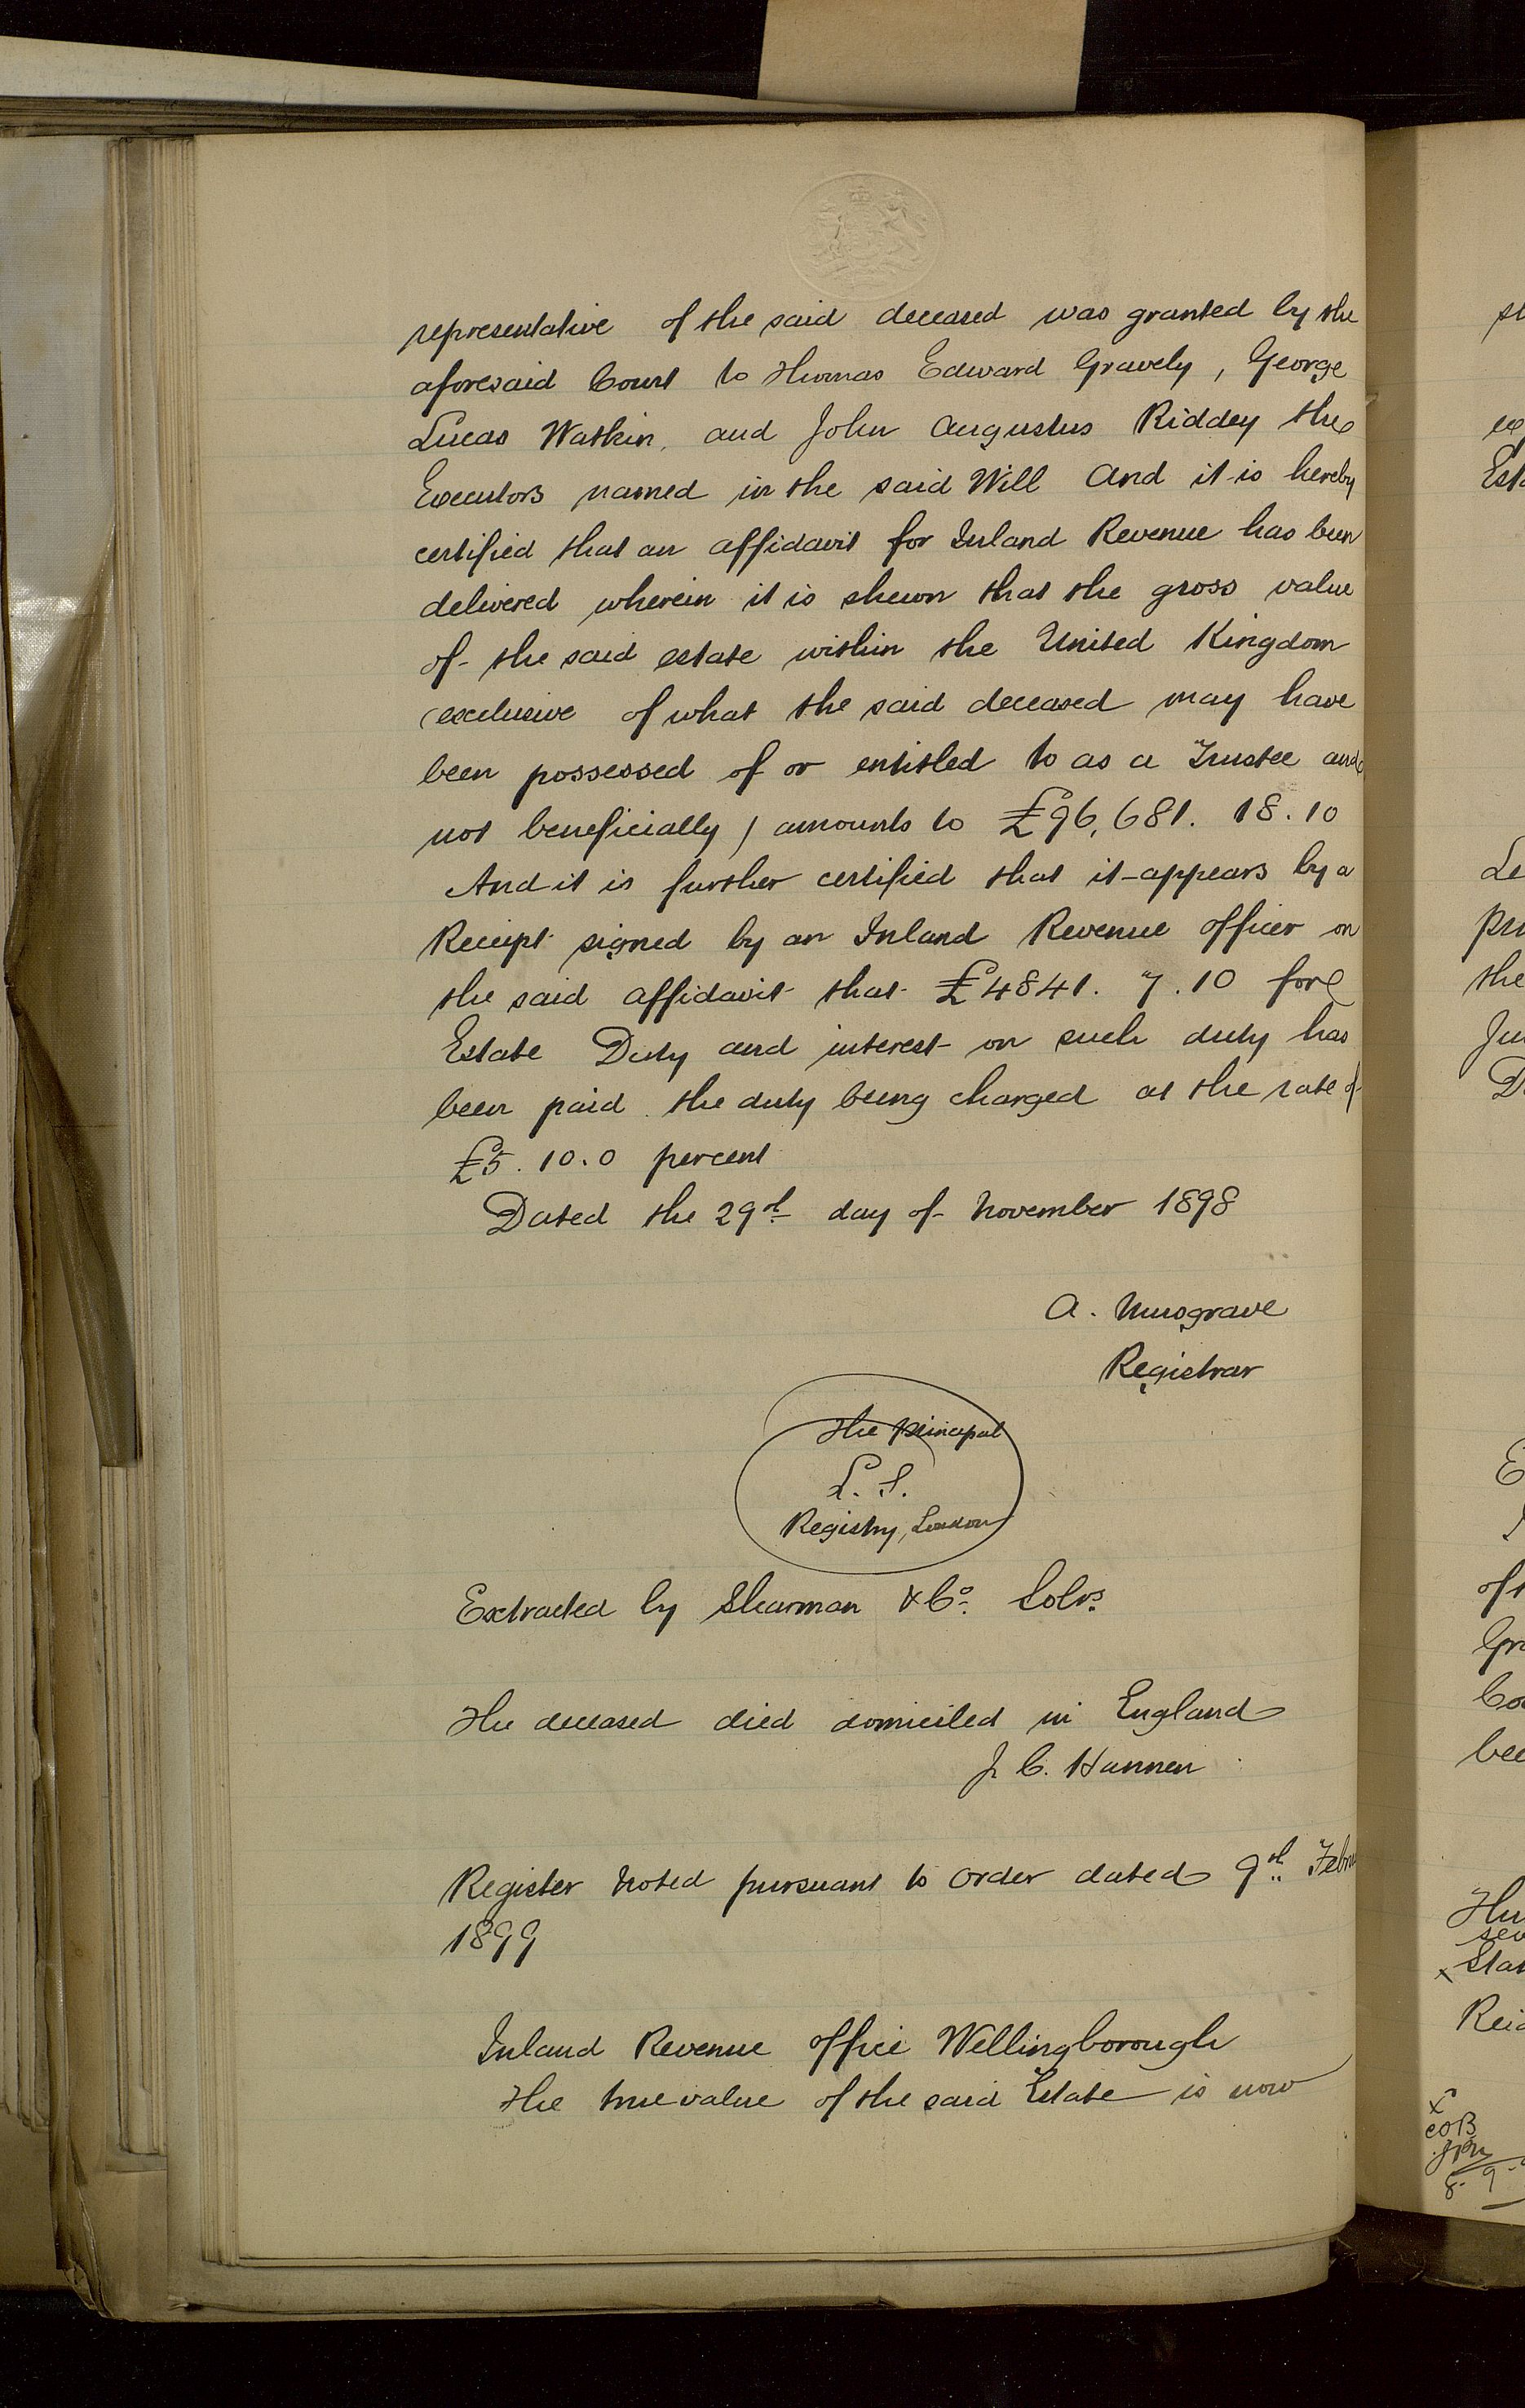 representative of the said deceased was granted by the
aforesaid Court to Thomas Edward Gravely, George
Lucas Watkin, and John Augustus Riddey the
Executors named in the said Will And it is hereby
certified that an affidavit for Inland Revenue has been
delivered wherein it is shewn that the gross value
of the said estate within the United Kingdom
(exclusive of what the said deceased may have
been possessed of or entitled to as a Trustee and
not beneficially) amounts to £96,681. 18. 10
And it is further certified that it appears by a
Receipt signed by an Inland Revenue officer on
the said affidavit that £4841. 7. 10 for
Estate Duty and interest on such duty has
been paid the duty being charged at the rate of
£5. 10. 0 percent
Dated the 29th day of November 1898
A. Musgrave
Registrar
The Principal
L. S.
Registry, London
Extracted by Sharman & Co. Solrs.
The deceased died domiciled in England
J. C. Hannen
Register Noted pursuant to order dated 9th Febru
1899
Inland Revenue office Wellingborough
The true value of the said Estate is now